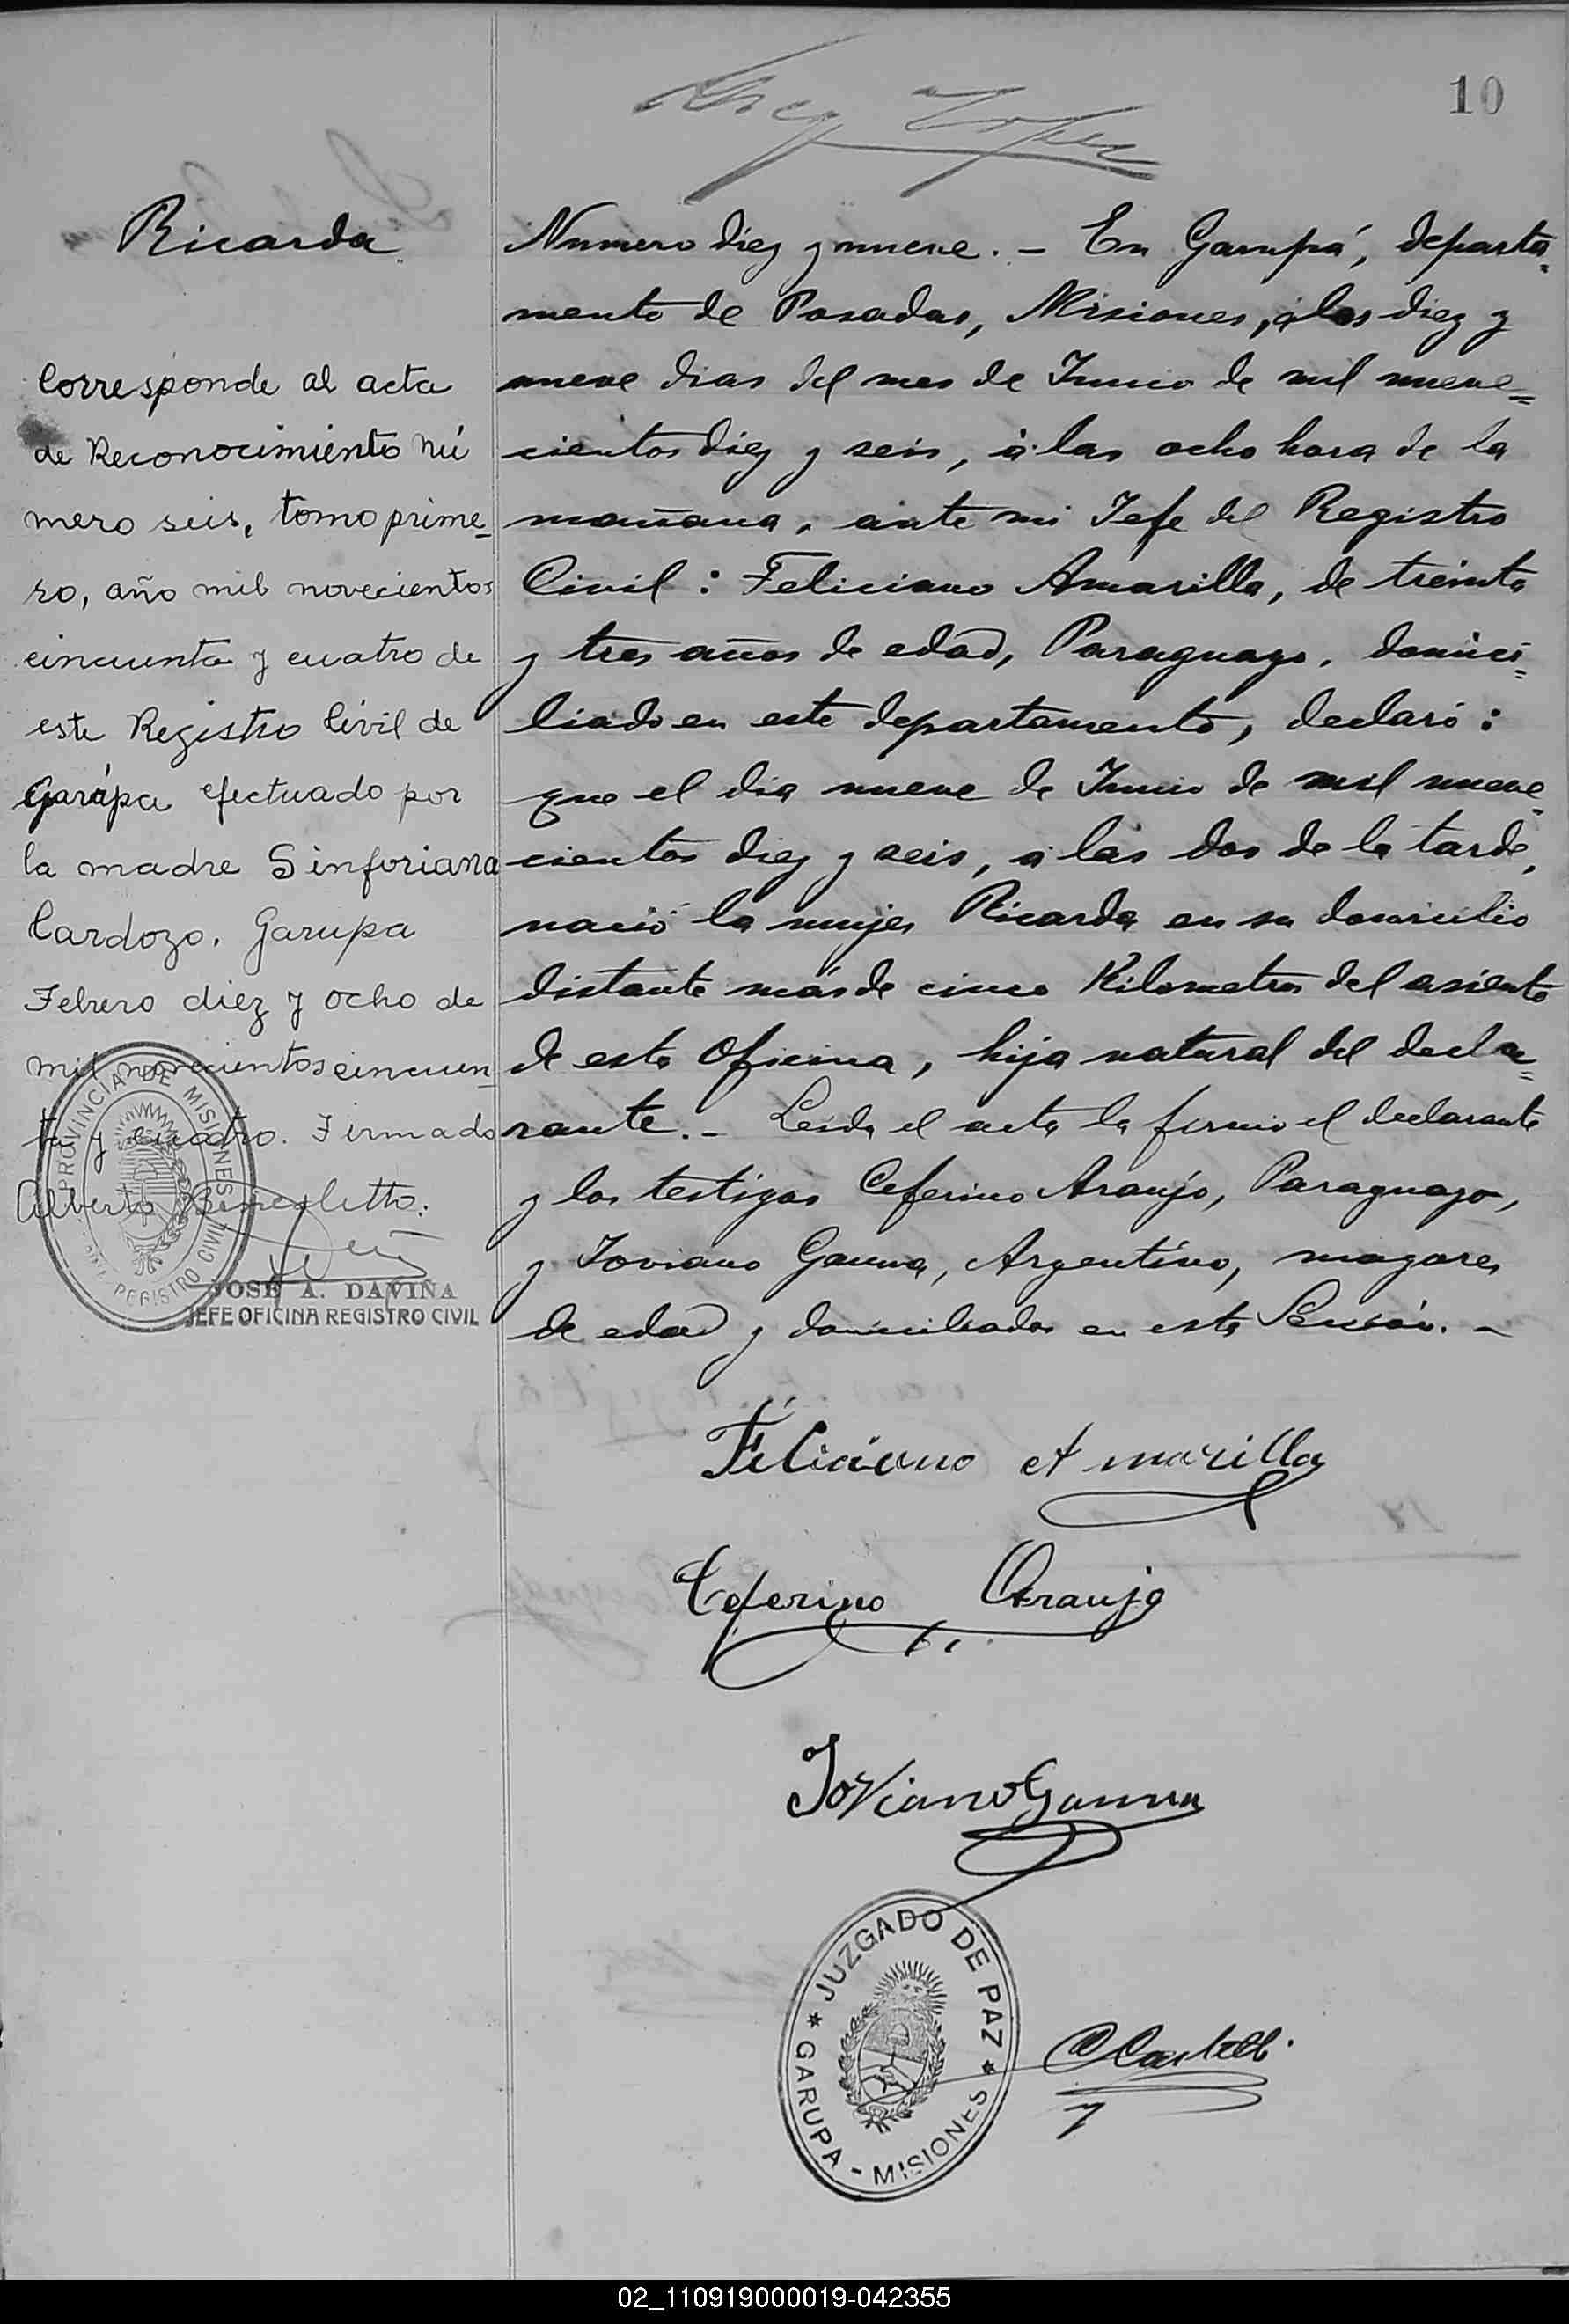 10
Ricarda
Corresponde al acta
de Reconocimiento nú
mero seis, tomo prime_
ro, año mil novecientos
cincuenta y cuatro de
este Registro Civil de
Garúpa efectuado por
la madre Sinforiana
Cardozo. Garupa
Febrero diez y ocho de
mil novecientos cincuen_
ta y cuatro. Firmado
Alberto
PROVINCIA DE MISIONES
REGISTRO CIVIL
JOSÉ A. DAVIÑA
JEFE OFICINA REGISTRO CIVIL
Numero diez y nueve. - En Garupá, departa=
mento de Posadas, Misiones, a los diez y
nueve dias del mes de Junio de mil nueve=
cientos diez y seis, á las ocho hora de la
mañana, ante mi Jefe del Registro
Civil: Feliciano Amarilla, de treinta
y tres años de edad, Paraguayo, domici=
liado en este departamento, declaró:
que el dia nueve de Junio de mil nueve=
cientos diez y seis, á las dos de la tarde,
nació la mujer Ricarda en su domicilio
distante más de cinco Kilometros del asiento
de esta Oficina, hija natural del decla=
rante. - Leida el acta la firmó el declarante
y los testigos Ceferino Araujo, Paraguayo,
y Joviano Gauna, Argentino, mayores
de edad y domiciliados en esta Sección. -
Feliciano Amarilla
Ceferino Araujo
Joviano Gauna
JUZGADO DE PAZ
GARUPA - MISIONES
02_110919000019-042355